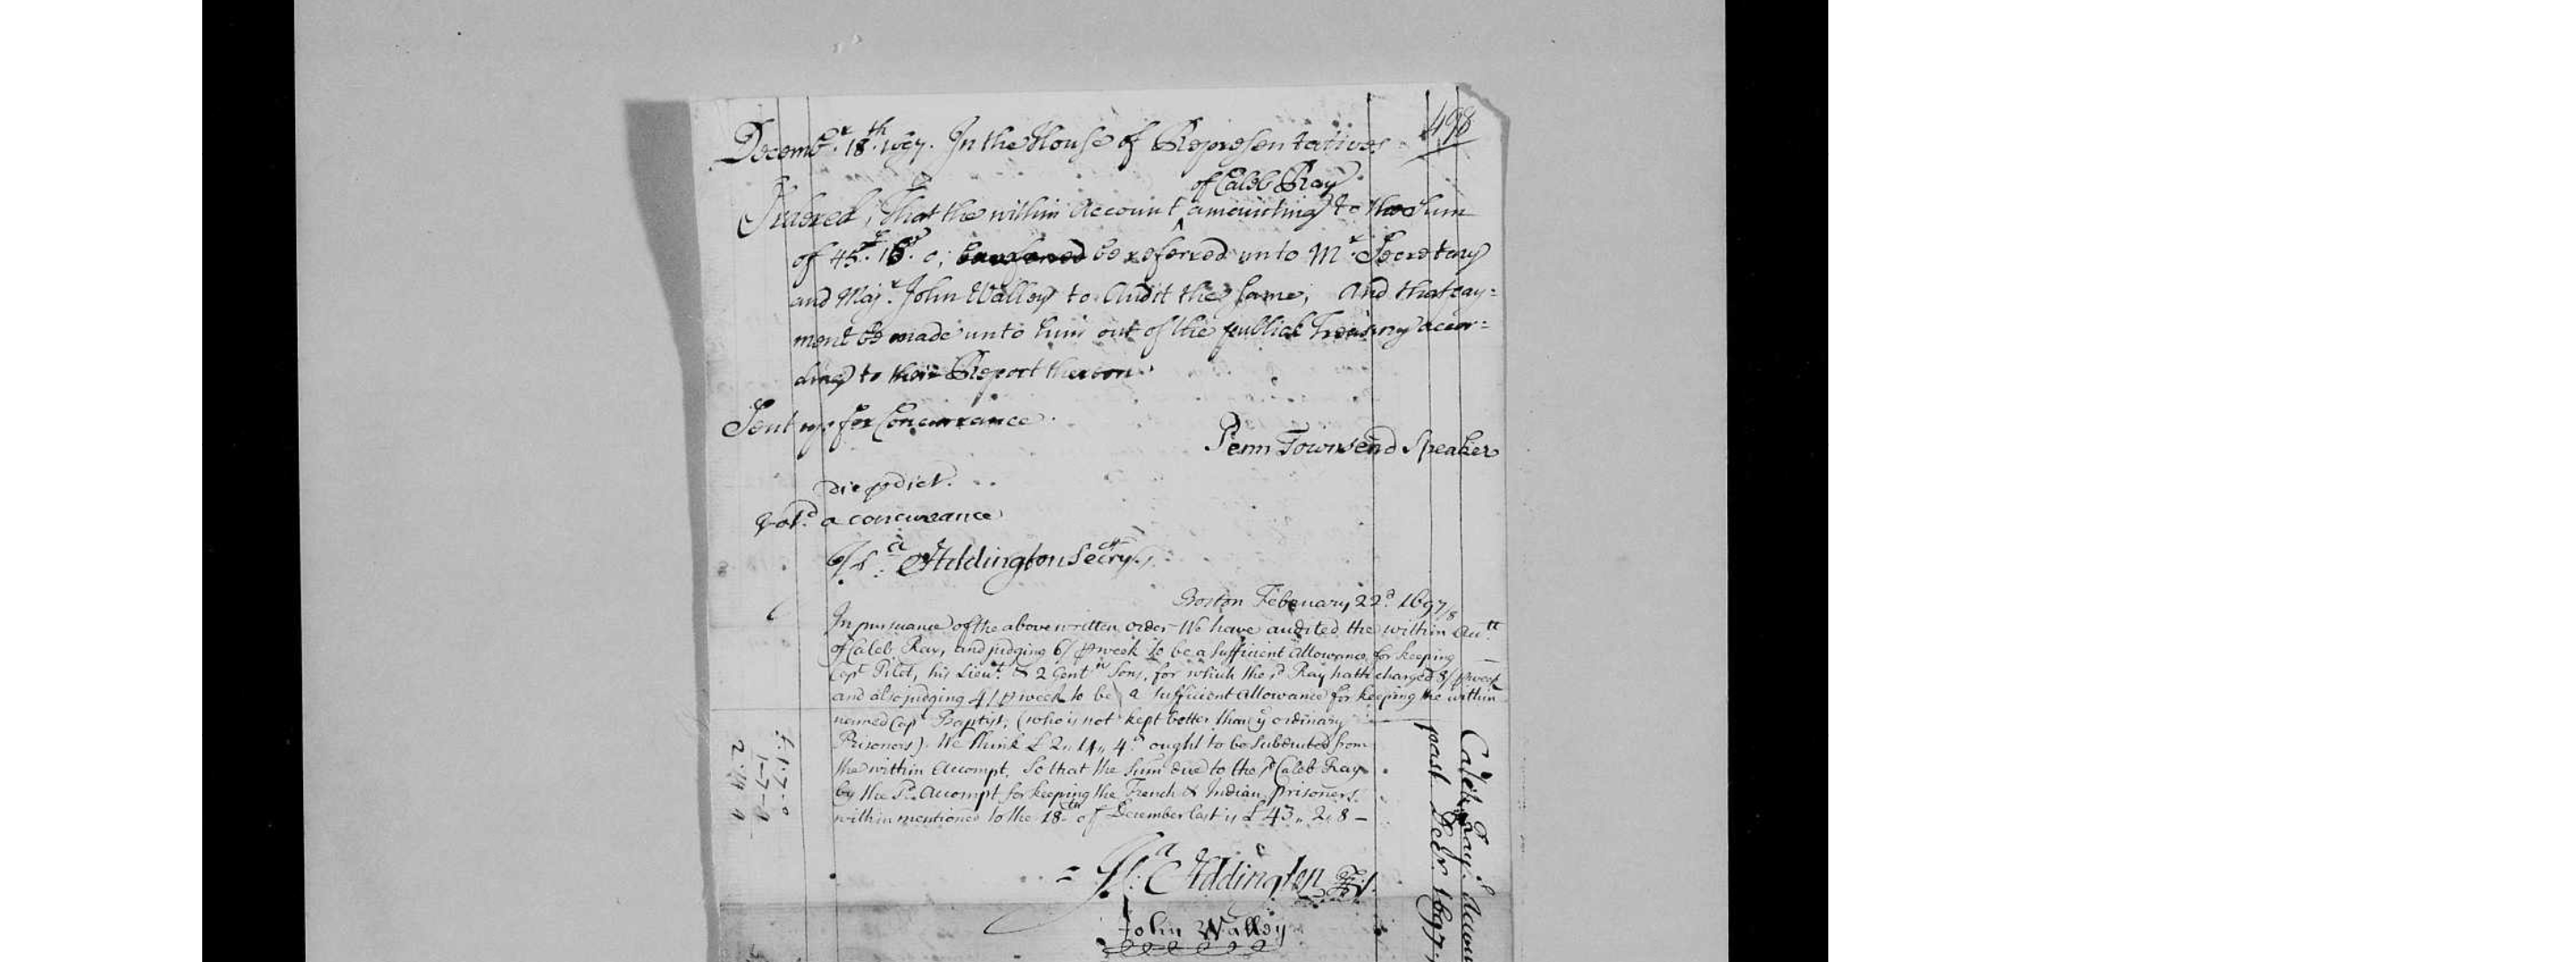 498
Decemb.r 18.th 1697. In the House of Representatives
of Caleb Ray
Ordered, That the within Account amounting to the sum
of 45.£ 16.s 0; be referred unto M.r Secretary
and Maj.r John Walley to Audit the same, And that pay=
ment be made unto him out of the publick Treasury accor=
ding to their Report thereon.
Sent up for Concurrance.
Penn Townsend Speaker
Die prdict.
Vot.d a concurrance
Is.a Addington Secry.
Boston February 22.d 1697/8
In pursuance of the above written order We have audited the within Acc.tt
of Caleb Ray, and judging 6/ p week to be a sufficient Allowance for keeping
Cap.t Pilot, his Lieu.t & 2 Gent.n Sons, for which the s.d Ray hath charged 8/ p week
and also judging 4/ p week to be a sufficient allowance for keeping the within
named Cap.t Baptist, (who is not kept better than y ordinary
Prisoners). We think £ 2,, 14,, 4.d ought to be subducted from
the within Accompt, So that the Sum due to the s.d Caleb Ray
by the s.d Accompt for keeping the French & Indian prisoners
within mentioned to the 18.th of December last is £ 43,, 2,, 8 —
Is.a Addington
John Walley
1-7-0
2 14 4
Caleb Ray's Accou
past Decr. 1697.